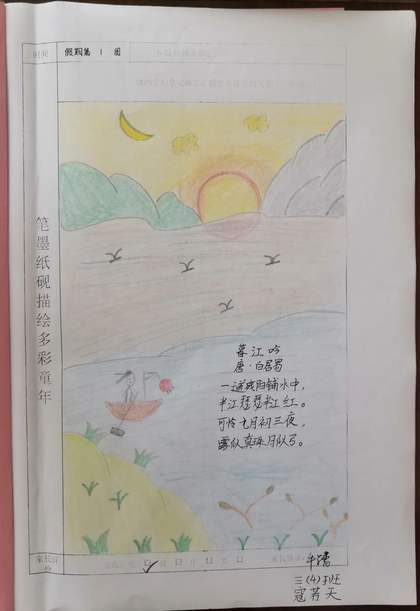 时间
假期第1周
笔墨纸砚描绘多彩童年
暮江吟
唐·白居易
一道残阳铺水中,
半江瑟瑟半江红。
可怜九月初三夜,
露似真珠月似弓。
家长评价
三(4)班